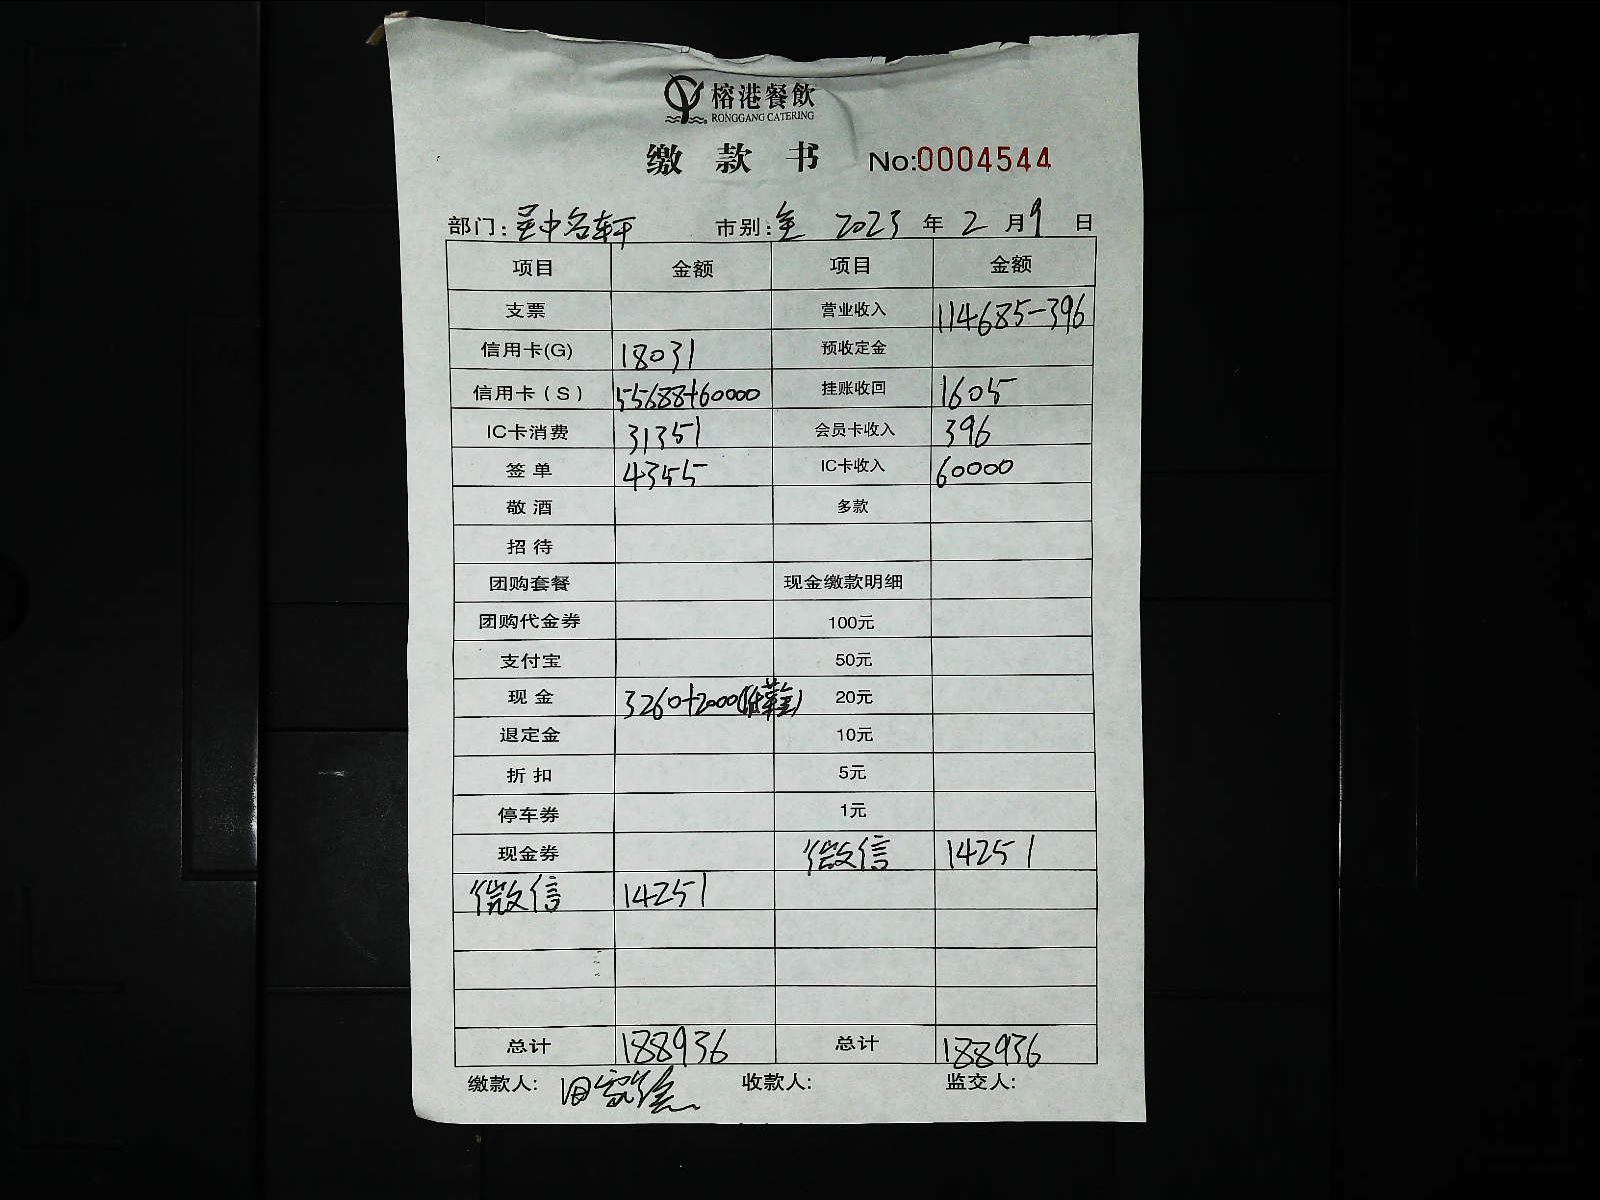 榕港餐飲
RONGGANG CATERING
缴款书 No:0004544
部门: 吴中名轩 市别: 全 2023 年 2 月 9 日
项目 金额 项目 金额
支票 营业收入 114685-396
信用卡(G) 18031 预收定金
信用卡(S) 55688+60000 挂账收回 1605
IC卡消费 31351 会员卡收入 396
签单 4355 IC卡收入 60000
敬酒 多款
招待
团购套餐 现金缴款明细
团购代金券 100元
支付宝 50元
现金 3260+2000 20元
退定金 10元
折扣 5元
停车券 1元
现金券 微信 14251
微信 14251
总计 188936 总计 188936
缴款人: 收款人: 监交人: